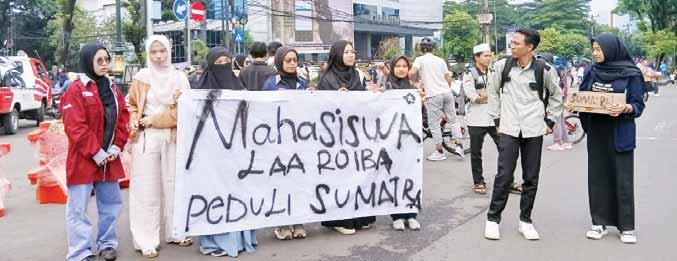 MAHASISWA
LAA ROIBA
PEDULI SUMATRA
SUMATRA